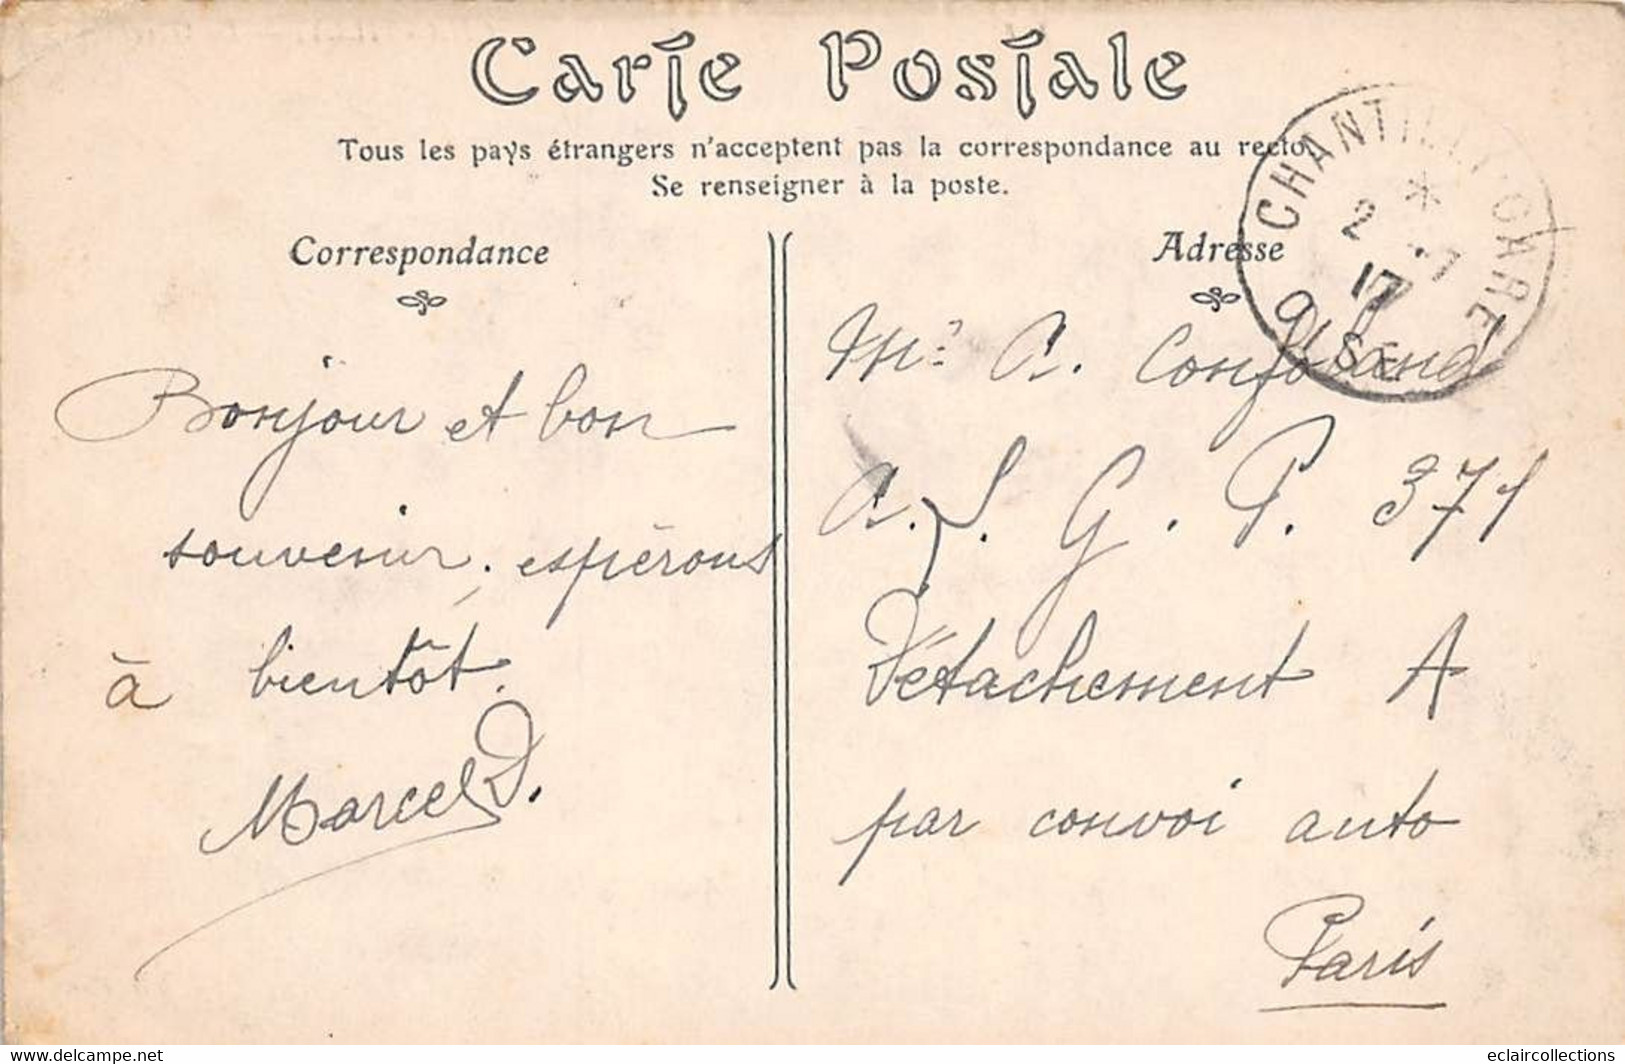 Carte Postale
Tous les pays étrangers n'acceptent pas la correspondance au recto
Se renseigner à la poste.
Correspondance
Adresse
CHANTILLY GARE
* 2 -7 17
OISE
Bonjour et bon
souvenir, espérons
à bientôt.
Marcel D.
Mr A. Conforand
A. S. G. P. 371
Détachement A
par convoi auto
Paris
www.delcampe.net
eclaircollections